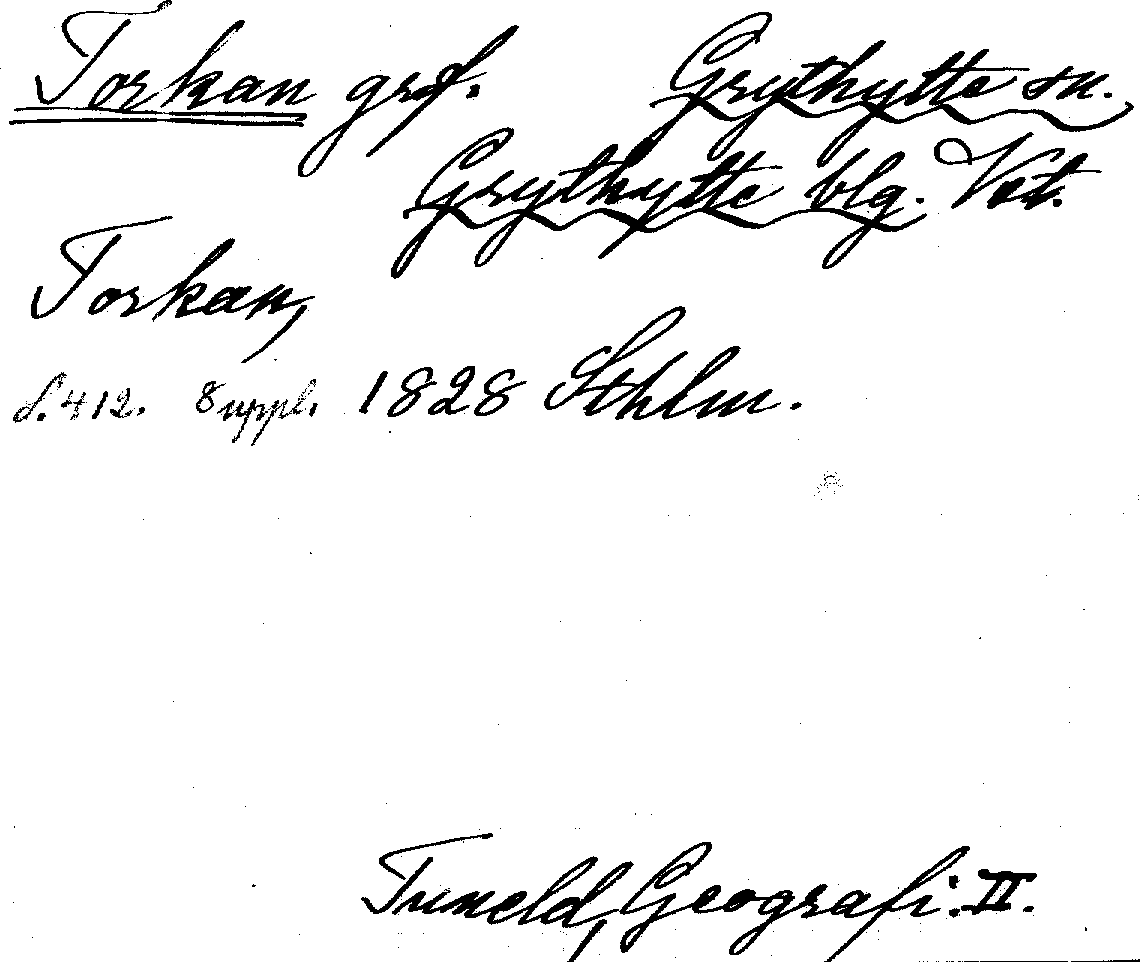 Torkan grf. Grythytte sn.
Grythytte blg. Vst.
Torkan,
s. 412. Suppl. 1828 Sthlm.
Tuneld, Geografi. II.